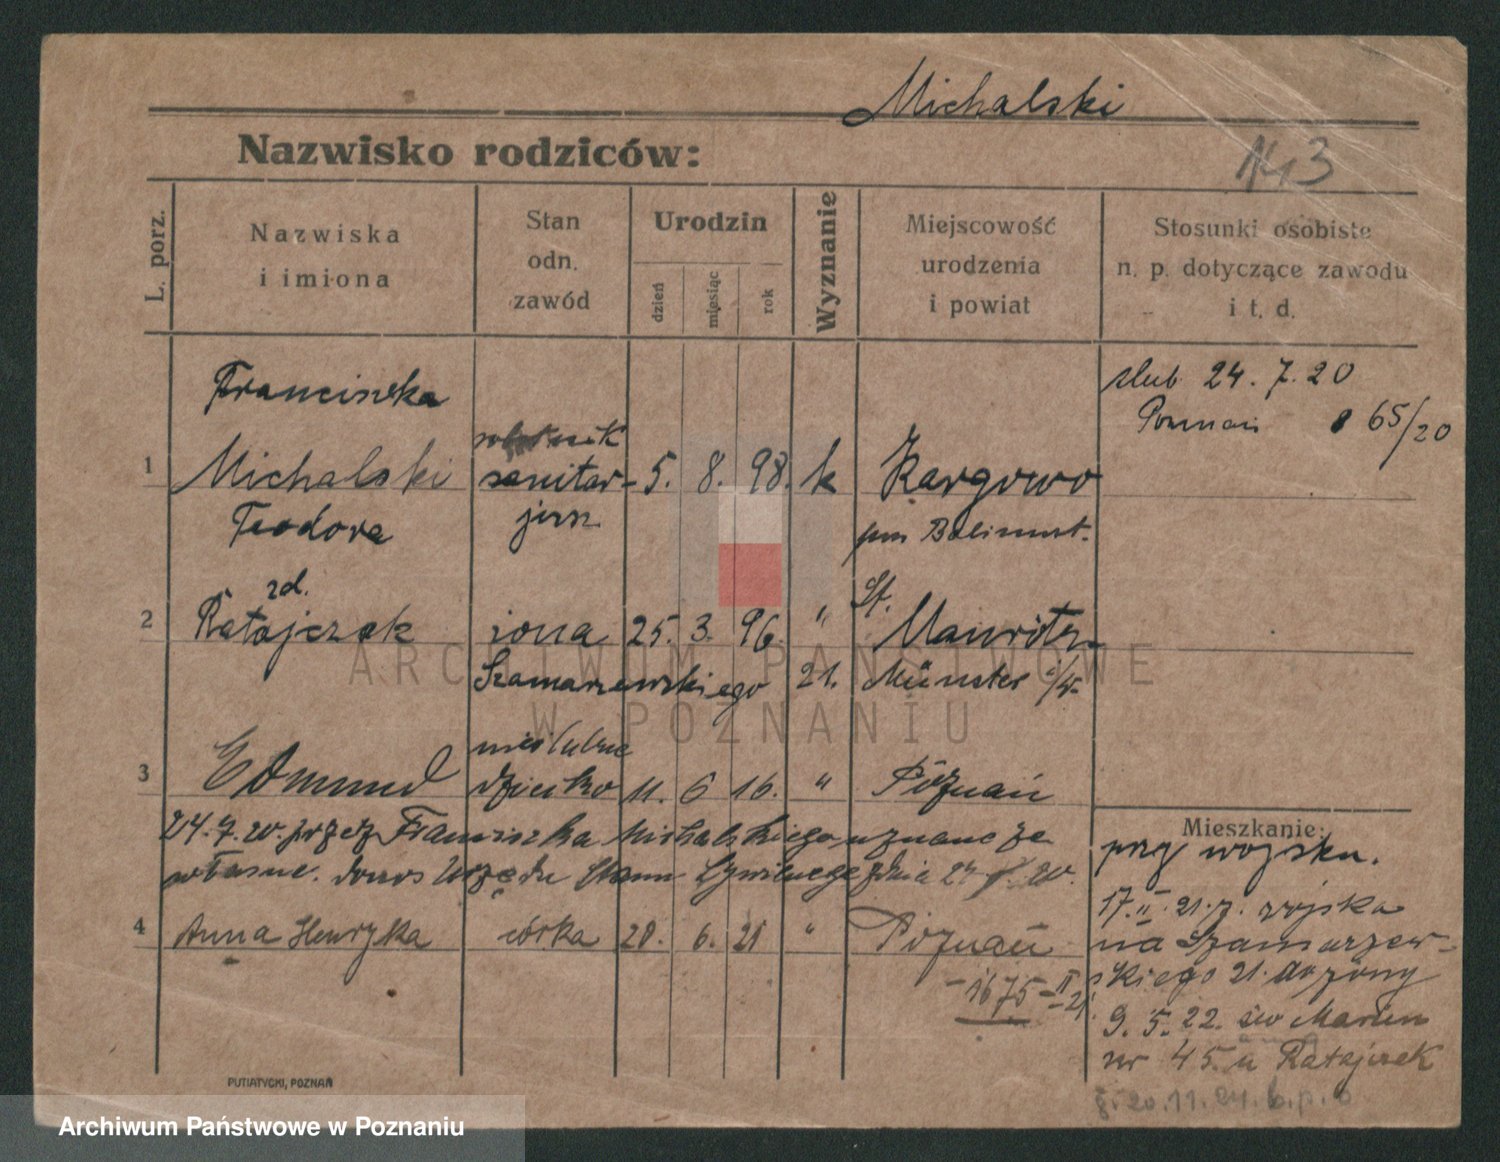 Michalski
Nazwisko rodziców:
Nr 3
L. porz.
Nazwiska
i imiona
Stan
odn.
zawód
Urodzin
dzień
miesiąc
rok
Wyznanie
Miejscowość
urodzenia
i powiat
Stosunki osobiste
n. p. dotyczące zawodu
i t. d.
ślub 24. 7. 20
Poznań 65/20
Franciszka
robotnik
1 Michalski sanitar- 5. 8. 98. k Kargowo
Teodora jusz pow Babimost.
zd. St.
2 Ratajczak żona 25. 3. 96. " Mauritz
Szamarzewskiego 21. Münster i/W.
nieślubne
3 Edmund dziecko 11. 6 16. " Poznań
24.7.20. przez Franciszka Michalskiego uznane za
własne. donos Urzędu Stanu Cywilnego z dnia 24 7. 20.
4 Anna Henryka córka 28. 6. 21 " Poznań
1675 - II 21.
Mieszkanie:
przy wojsku.
17.II.21. z. wojska
na Szamarzew-
skiego 21. do żony
9. 5. 22. św Marcin
nr 45. u Ratajczak
20.11.24. b.p.
PUTIATYCKI, POZNAŃ
ARCHIWUM PAŃSTWOWE
W POZNANIU
Archiwum Państwowe w Poznaniu